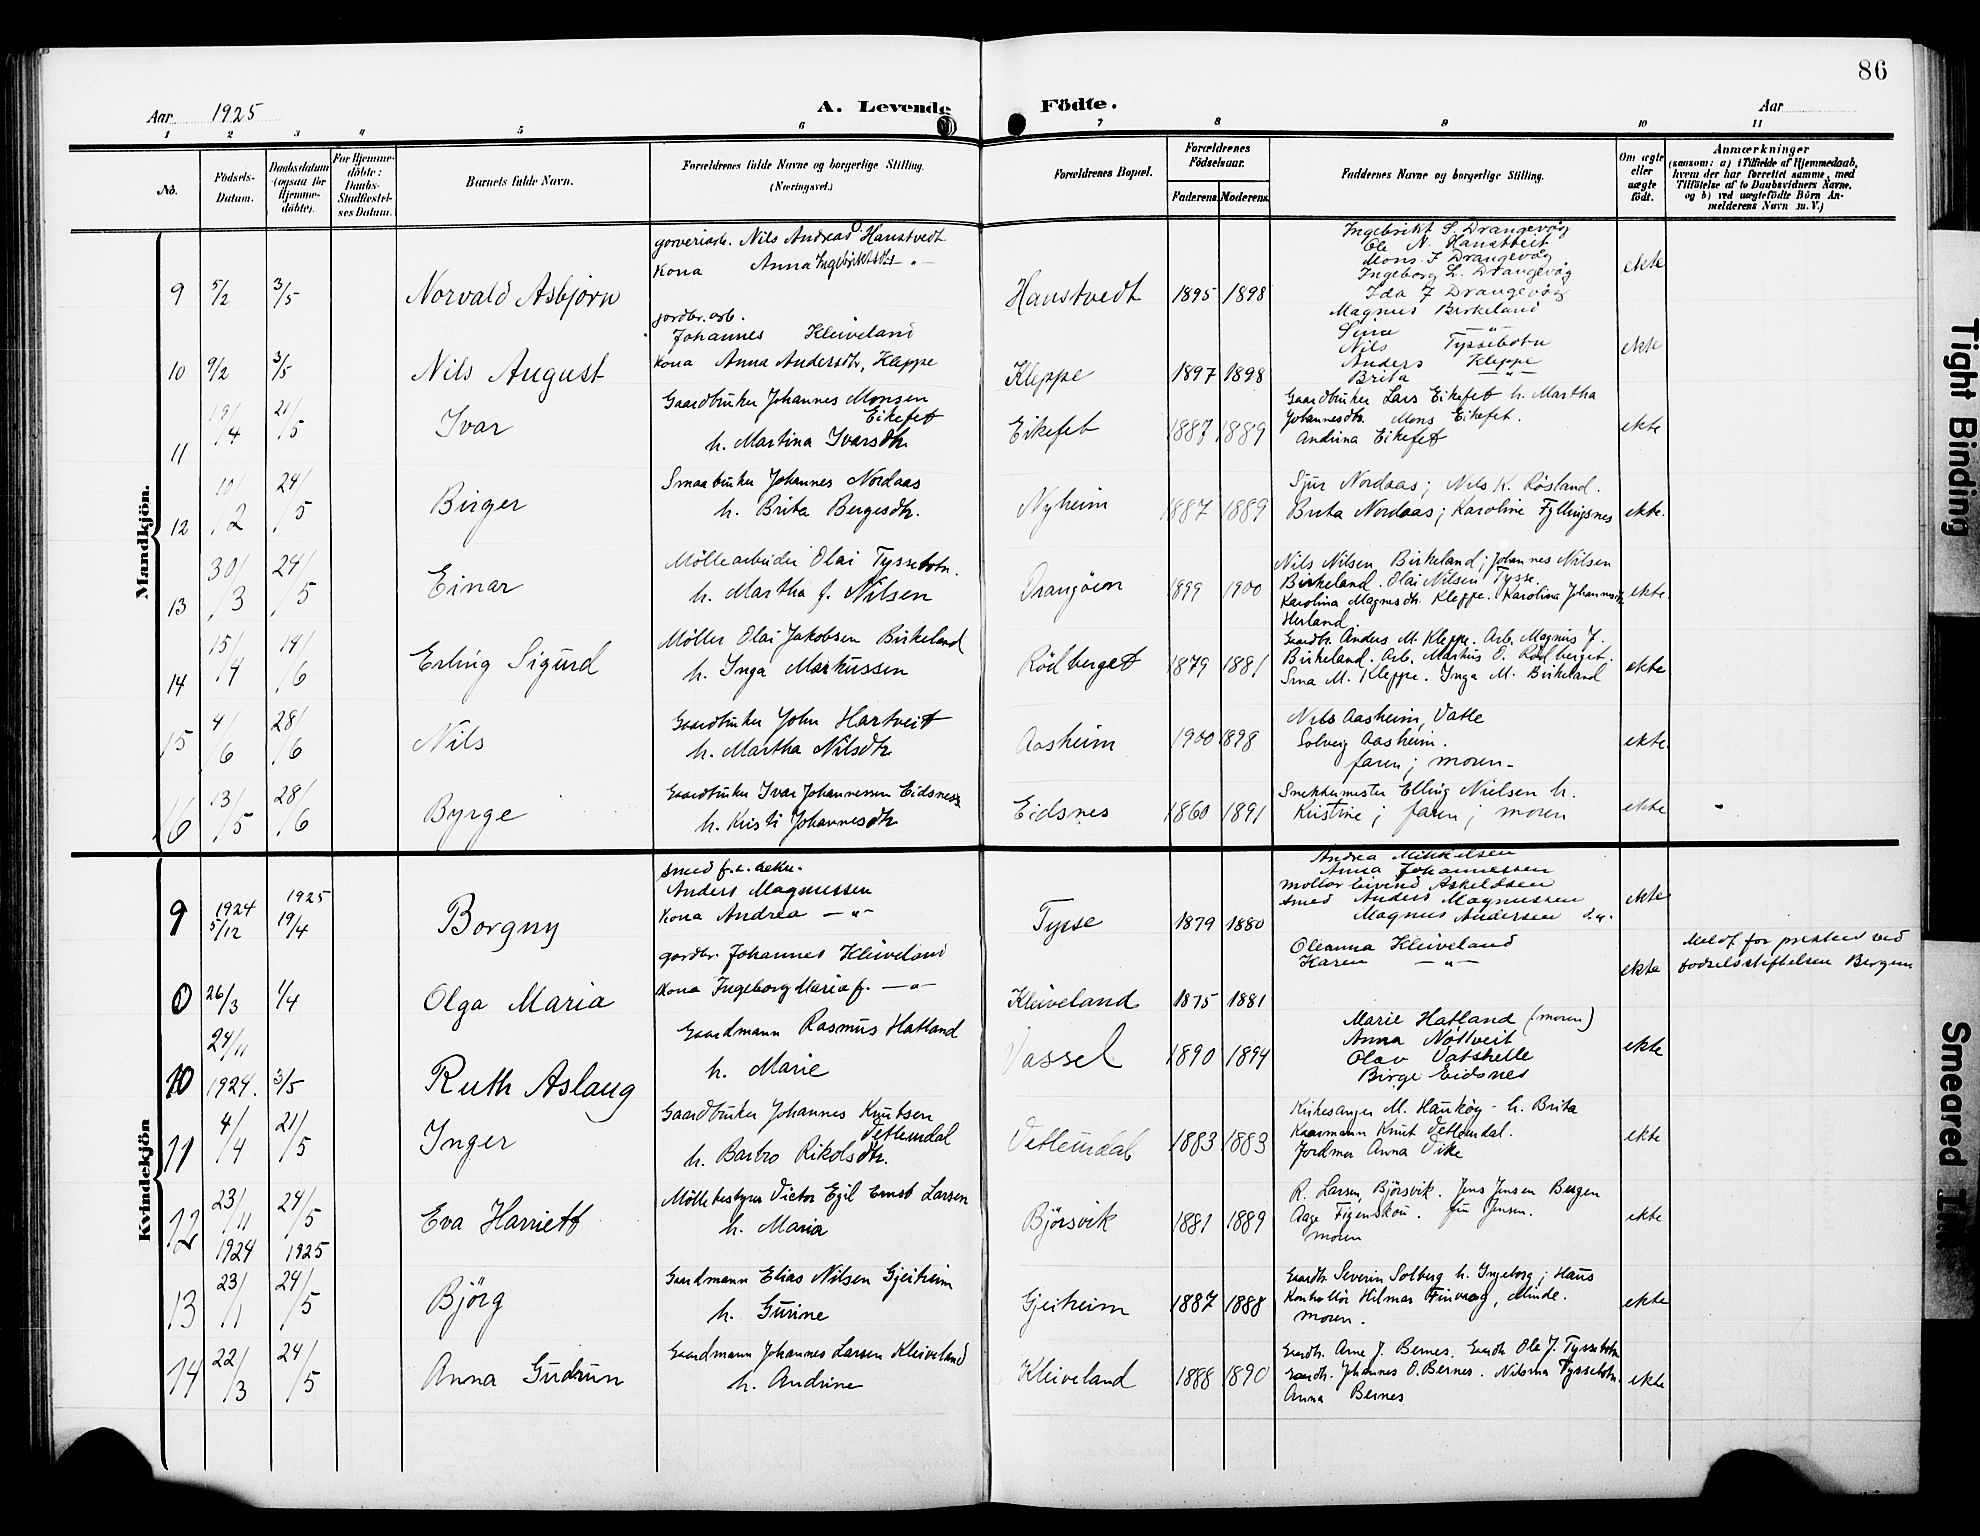 86
Aar 1925
A. Levende Födte.
Aar
1 2 3 4 5 6 7 8 9 10 11
No.
Födsels-Datum.
Daabsdatum (ogsaa for Hjemme-döbte).
For Hjemme-döbte: Daabs-Stadfæstel-ses Datum.
Barnets fulde Navn.
Forældrenes fulde Navne og borgerlige Stilling. (Næringsvei.)
Forældrenes Bopæl.
Forældrenes Födselsaar.
Faderens. Moderens.
Faddernes Navne og borgerlige Stilling.
Om ægte eller uægte födt.
Anmærkninger
(saasom: a) i Tilfælde af Hjemmedaab, hvem der har forrettet samme, med Tilföielse af to Daabsvidners Navne, og b) ved uægtefödte Börn An-melderens Navn m. V.)
Mandkjön.
9 5/2 3/5 Norvald Asbjørn
Nils Andreas Hanstvedt
Kona Anna Ingebriktsdtr —"—
Hanstvedt 1895 1898
Ingebrikt S. Drangevåg
Ole N. Hanstveit
Mons I Drangevåg
Ingeborg L. Drangevåg
Ida J Drangevåg
ekte
10 9/2 3/5 Nils August
jordbr. arb.
Johannes Kleiveland
Kona Anna Andersdtr, Kleppe
Kleppe 1897 1898
Magnus Birkeland
Sina —"—
Nils Tyssebotn
Anders Kleppe
Brita —"—
ekte
11 19/4 21/5 Ivar
Gaardbruker Johannes Monsen
Eikefet
h. Martina Ivarsdtr.
Eikefet 1887 1889
Gaardbruker Lars Eikefet h. Martha
Johannesdtr. Mons Eikefet.
Andrina Eikefet
ekte
12 10/2 24/5 Birger
Smaabruker Johannes Nordaas
h. Brita Bergesdtr.
Nyheim 1887 1889
Sjur Nordaas; Nils K. Røsland.
Brita Nordaas; Karoline Fyllingsnes
ekte.
13 30/3 24/5 Einar
Möllearbeider Olai Tyssebotn.
h. Martha f. Nilsen
Drangöen 1899 1900
Nils Nilsen Birkeland; Johannes Nilsen
Birkeland. Olai Nilsen Tysse.
Karolina Magnesdtr. Kleppe. Karolina Johannesdtr
Herland.
ekte.
14 15/4 14/6 Erling Sigurd
Möller Olai Jakobsen Birkeland
h. Inga Markussen
Rödberget 1879 1881
Gaardbr. Anders M. Kleppe. Arb. Magnus J.
Birkeland. Arb. Markus O. Rödberget.
Sina M. Kleppe. Inga M. Birkeland
ekte
15 4/6 28/6 Nils
Gaardbruker John Hartveit
h. Martha Nilsdtr
Aasheim 1900 1898
Nils Aasheim, Vatle
Solveig Aasheim.
faren; moren.
ekte.
16 13/5 28/6 Byrge
Gaardbruker Ivar Johannessen Eidsnes
h. Kristi Johannesdtr
Eidsnes 1860 1891
Snekkermester Elling Nielsen h.
Kristine; faren; moren
ekte
Kvindekjön
9 1924 5/12 1925 19/4 Borgny
smed
Anders Magnussen
Kona Andrea —"—
Tysse 1879 1880
Andrea Mikkelsen
Anna Johannessen
møllar Eivind Askeldsen
smed Anders Magnussen
Magnus Andersen
ekte
0 26/3 1/4 Olga Maria
gardbr. Johannes Kleiveland
Kona Ingeborg Maria f. —"—
Kleiveland 1875 1881
Oleanna Kleiveland
Karen —"—
ekte
Meldt for presten ved
fødselsstiftelsen Bergen
10 24/11 1924. 3/5 Ruth Aslaug
Gaardmann Rasmus Hatland
h. Marie
Vassel 1890 1894
Marie Hatland (moren)
Anna Nøttveit
Olav Vatshelle
Birge Eidsnes
ekte
11 4/4 21/5 Inger
Gaardbruker Johannes Knutsen
Vetlemdal
h. Barbro Rikolsdtr.
Vetlemdal 1883 1883
Kirkesanger M. Haukøy - h. Brita
Kaarmann Knut Vetlemdal.
Jordmor Anna Vike
ekte
12 23/11 1924 24/5 1925 Eva Harriett
Möllebestyrer Victor Egil Ernst Larsen
h. Maria
Björsvik 1881 1889
R. Larsen, Björsvik. Jens Jensen Bergen
Aage Figenskou. fru Jensen.
moren
ekte
13 23/1 24/5 Björg
Gaardmann Elias Nilsen Gjeiheim
h. Gurine
Gjeiheim 1887 1888
Gaardbr. Severin Solberg h. Ingeborg; Haus
Kontrollör Hilmar Finvrag, Minde.
moren.
ekte
14 22/3 24/5 Anna Gudrun
Gaardmann Johannes Larsen Kleiveland
h. Andrine
Kleiveland 1888 1890
Gaardbr. Arne J. Bernes. Gaardbr Ole J. Tyssebotn
Gaardbr. Johannes O. Bernes. Nilsina Tyssebotn.
Anna Bernes
ekte
Tight Binding
Smeared Ink